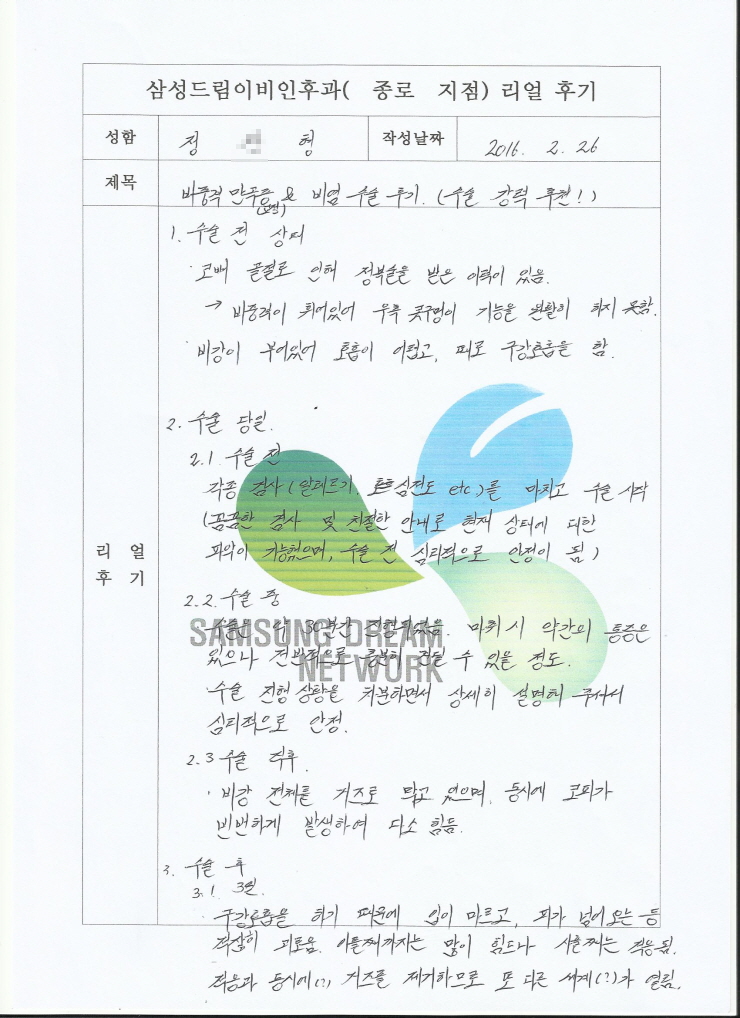 삼성드림이비인후과( 종로 지점) 리얼 후기
성함 정 형 작성날짜 2016. 2. 26
제목 비중격 만곡증 & 비염 수술 후기. (수술 강력 추천!)
1. 수술 전 상태
· 코뼈 골절로 인해 정복술을 받은 이력이 있음.
→ 비중격이 휘어있어 우측 콧구멍이 기능을 원활히 하지 못함.
· 비강이 부어있어 호흡이 어렵고, 피로 구강호흡을 함.
2. 수술 당일.
2.1 수술 전
각종 검사(알레르기, 심전도 etc)를 마치고 수술 시작
(꼼꼼한 검사 및 친절한 안내로 현재 상태에 대한
파악이 가능했으며, 수술 전 심리적으로 안정이 됨)
리 얼
후 기
2.2. 수술 중
· 수술은 약 30분간 진행되었음. 마취 시 약간의 통증은
있으나 전반적으로 충분히 견딜 수 있을 정도.
SAMSUNG DREAM
NETWORK
· 수술 진행 상황을 차분하면서 상세히 설명해 주셔서
심리적으로 안정.
2.3 수술 직후.
· 비강 전체를 거즈로 막고 있으며, 동시에 코피가
빈번하게 발생하여 다소 힘듬.
3. 수술 후
3.1. 3일.
· 구강호흡을 하기 때문에 입이 마르고, 피가 넘어오는 등
굉장히 괴로움. 이틀째까지는 많이 힘드나 사흘째는 적응됨.
적응과 동시에(?) 거즈를 제거하므로 또 다른 세계(?)가 열림.